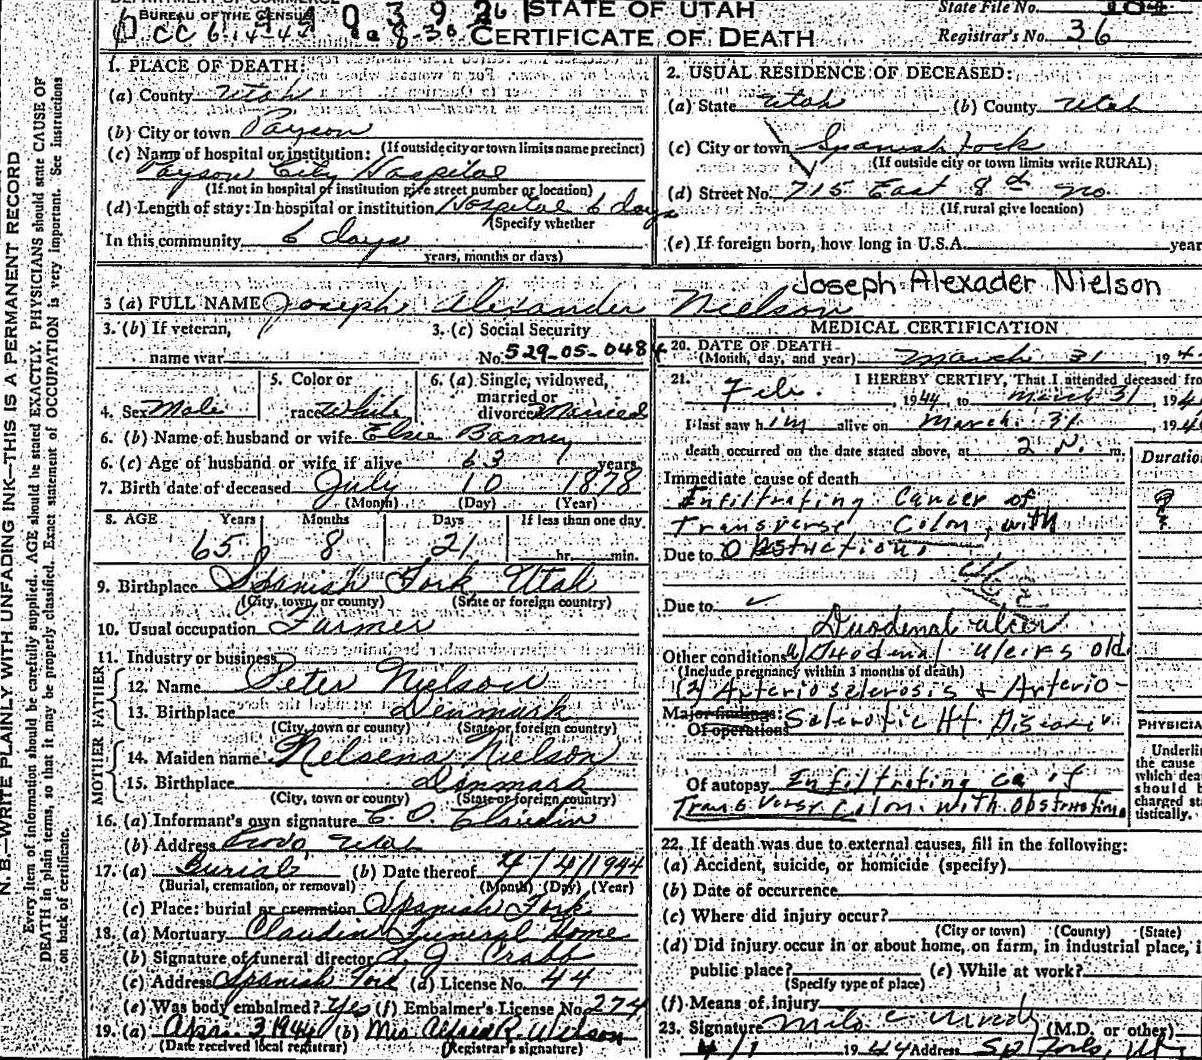 DEPARTMENT OF COMMERCE
BUREAU OF THE CENSUS
STATE OF UTAH
CERTIFICATE OF DEATH
State File No. 104
Registrar's No. 36
N. B.—WRITE PLAINLY WITH UNFADING INK—THIS IS A PERMANENT RECORD
Every item of information should be carefully supplied. AGE should be stated EXACTLY. PHYSICIANS should state CAUSE OF
DEATH in plain terms, so that it may be properly classified. Exact statement of OCCUPATION is very important. See instructions
on back of certificate.
1. PLACE OF DEATH:
(a) County Utah
(b) City or town Payson
(If outside city or town limits name precinct)
(c) Name of hospital or institution:
Payson City Hospital
(If not in hospital or institution give street number or location)
(d) Length of stay: In hospital or institution Hospital 6 days
(Specify whether
In this community 6 days
years, months or days)
2. USUAL RESIDENCE OF DECEASED:
(a) State Utah (b) County Utah
(c) City or town Spanish Fork
(If outside city or town limits write RURAL)
(d) Street No. 715 East 8th No.
(If rural give location)
(e) If foreign born, how long in U.S.A. year
Joseph Alexader Nielson
3 (a) FULL NAME Joseph Alexander Nielson
3. (b) If veteran,
name war
3. (c) Social Security
No. 529-05-0484
4. Sex Male
5. Color or
race White
6. (a) Single, widowed,
married or
divorced Married
6. (b) Name of husband or wife Elsie Barney
6. (c) Age of husband or wife if alive 63 years
7. Birth date of deceased July 10 1878
(Month) (Day) (Year)
8. AGE Years Months Days If less than one day
65 8 21 hr. min.
9. Birthplace Spanish Fork Utah
(City, town, or county) (State or foreign country)
10. Usual occupation Farmer
11. Industry or business
FATHER
12. Name Peter Nielson
13. Birthplace Denmark
(City, town or county) (State or foreign country)
MOTHER
14. Maiden name Nelsena Nielson
15. Birthplace Denmark
(City, town or county) (State or foreign country)
16. (a) Informant's own signature C. O. Claudin
(b) Address Provo, Utah
17. (a) Burial (b) Date thereof 4/4/1944
(Burial, cremation, or removal) (Month) (Day) (Year)
(c) Place: burial or cremation Spanish Fork
18. (a) Mortuary Claudin Funeral Home
(b) Signature of funeral director J Crabb
(c) Address Spanish Fork (d) License No. 44
(e) Was body embalmed? Yes (f) Embalmer's License No. 274
19. (a) Apr. 3 1944 (b) Mrs Alfred R. Wilson
(Date received local registrar) (Registrar's signature)
MEDICAL CERTIFICATION
20. DATE OF DEATH
(Month, day, and year) March 31 194
21. I HEREBY CERTIFY, That I attended deceased fro
Feb. 1944, to March 31, 194
I last saw him alive on March 31 194
death occurred on the date stated above, at 2 m. Duration
Immediate cause of death
Infiltrating Cancer of
Transverse Colon, with
Due to Obstruction.
Due to
Duodenal ulcer
Other conditions (1) Duodenal ulcers old.
(Include pregnancy within 3 months of death)
(2) Arteriosclerosis & Arterio-
Major findings: Sclerotic Ht Disease
Of operations
PHYSICIA
Underlin
the cause
which dea
should b
charged st
tistically.
Of autopsy Infiltrating ca of
Transverse Colon with obstruction
22. If death was due to external causes, fill in the following:
(a) Accident, suicide, or homicide (specify)
(b) Date of occurrence
(c) Where did injury occur?
(City or town) (County) (State)
(d) Did injury occur in or about home, on farm, in industrial place, i
public place? (e) While at work?
(Specify type of place)
(f) Means of injury
23. Signature Milo C (M.D. or other)
4/1 1944 Address Sp. Fork, Ut